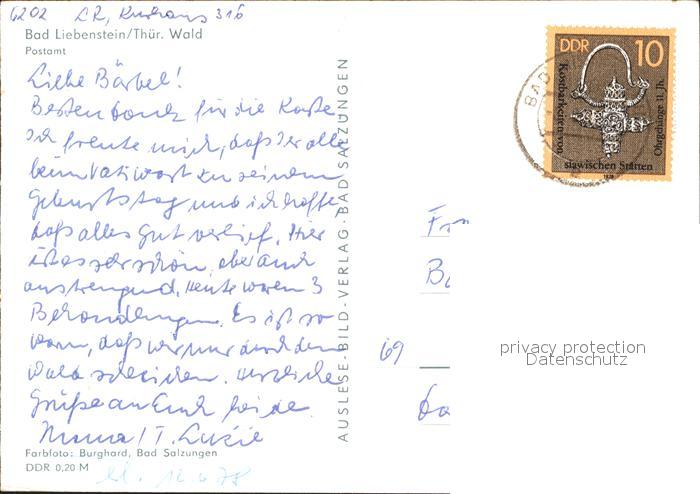 6202 LR, Kurhaus 316
Bad Liebenstein/Thür. Wald
Postamt
Liebe Bärbel!
Besten Dank für die Karte
Ich freute mich, daß Ihr alle
beim Vati wart zu seinem
Geburtstag und ich hoffe,
daß alles gut verlief. Hier
ist es sehr schön, aber auch
anstrengend. Heute waren 3
Behandlungen. Es ist so
warm, daß wir nur durch den
Wald schleichen. Herzliche
Grüße an Euch beide.
Mama / T. Luzie
Farbfoto: Burghard, Bad Salzungen
DDR 0,20 M
12.6.78
AUSLESE-BILD-VERLAG · BAD SALZUNGEN
BAD
DDR 10
Kostbarkeiten von
slawischen Stätten
Ohrgehänge 11. Jh.
1978
Fr
B
69
privacy protection
Datenschutz